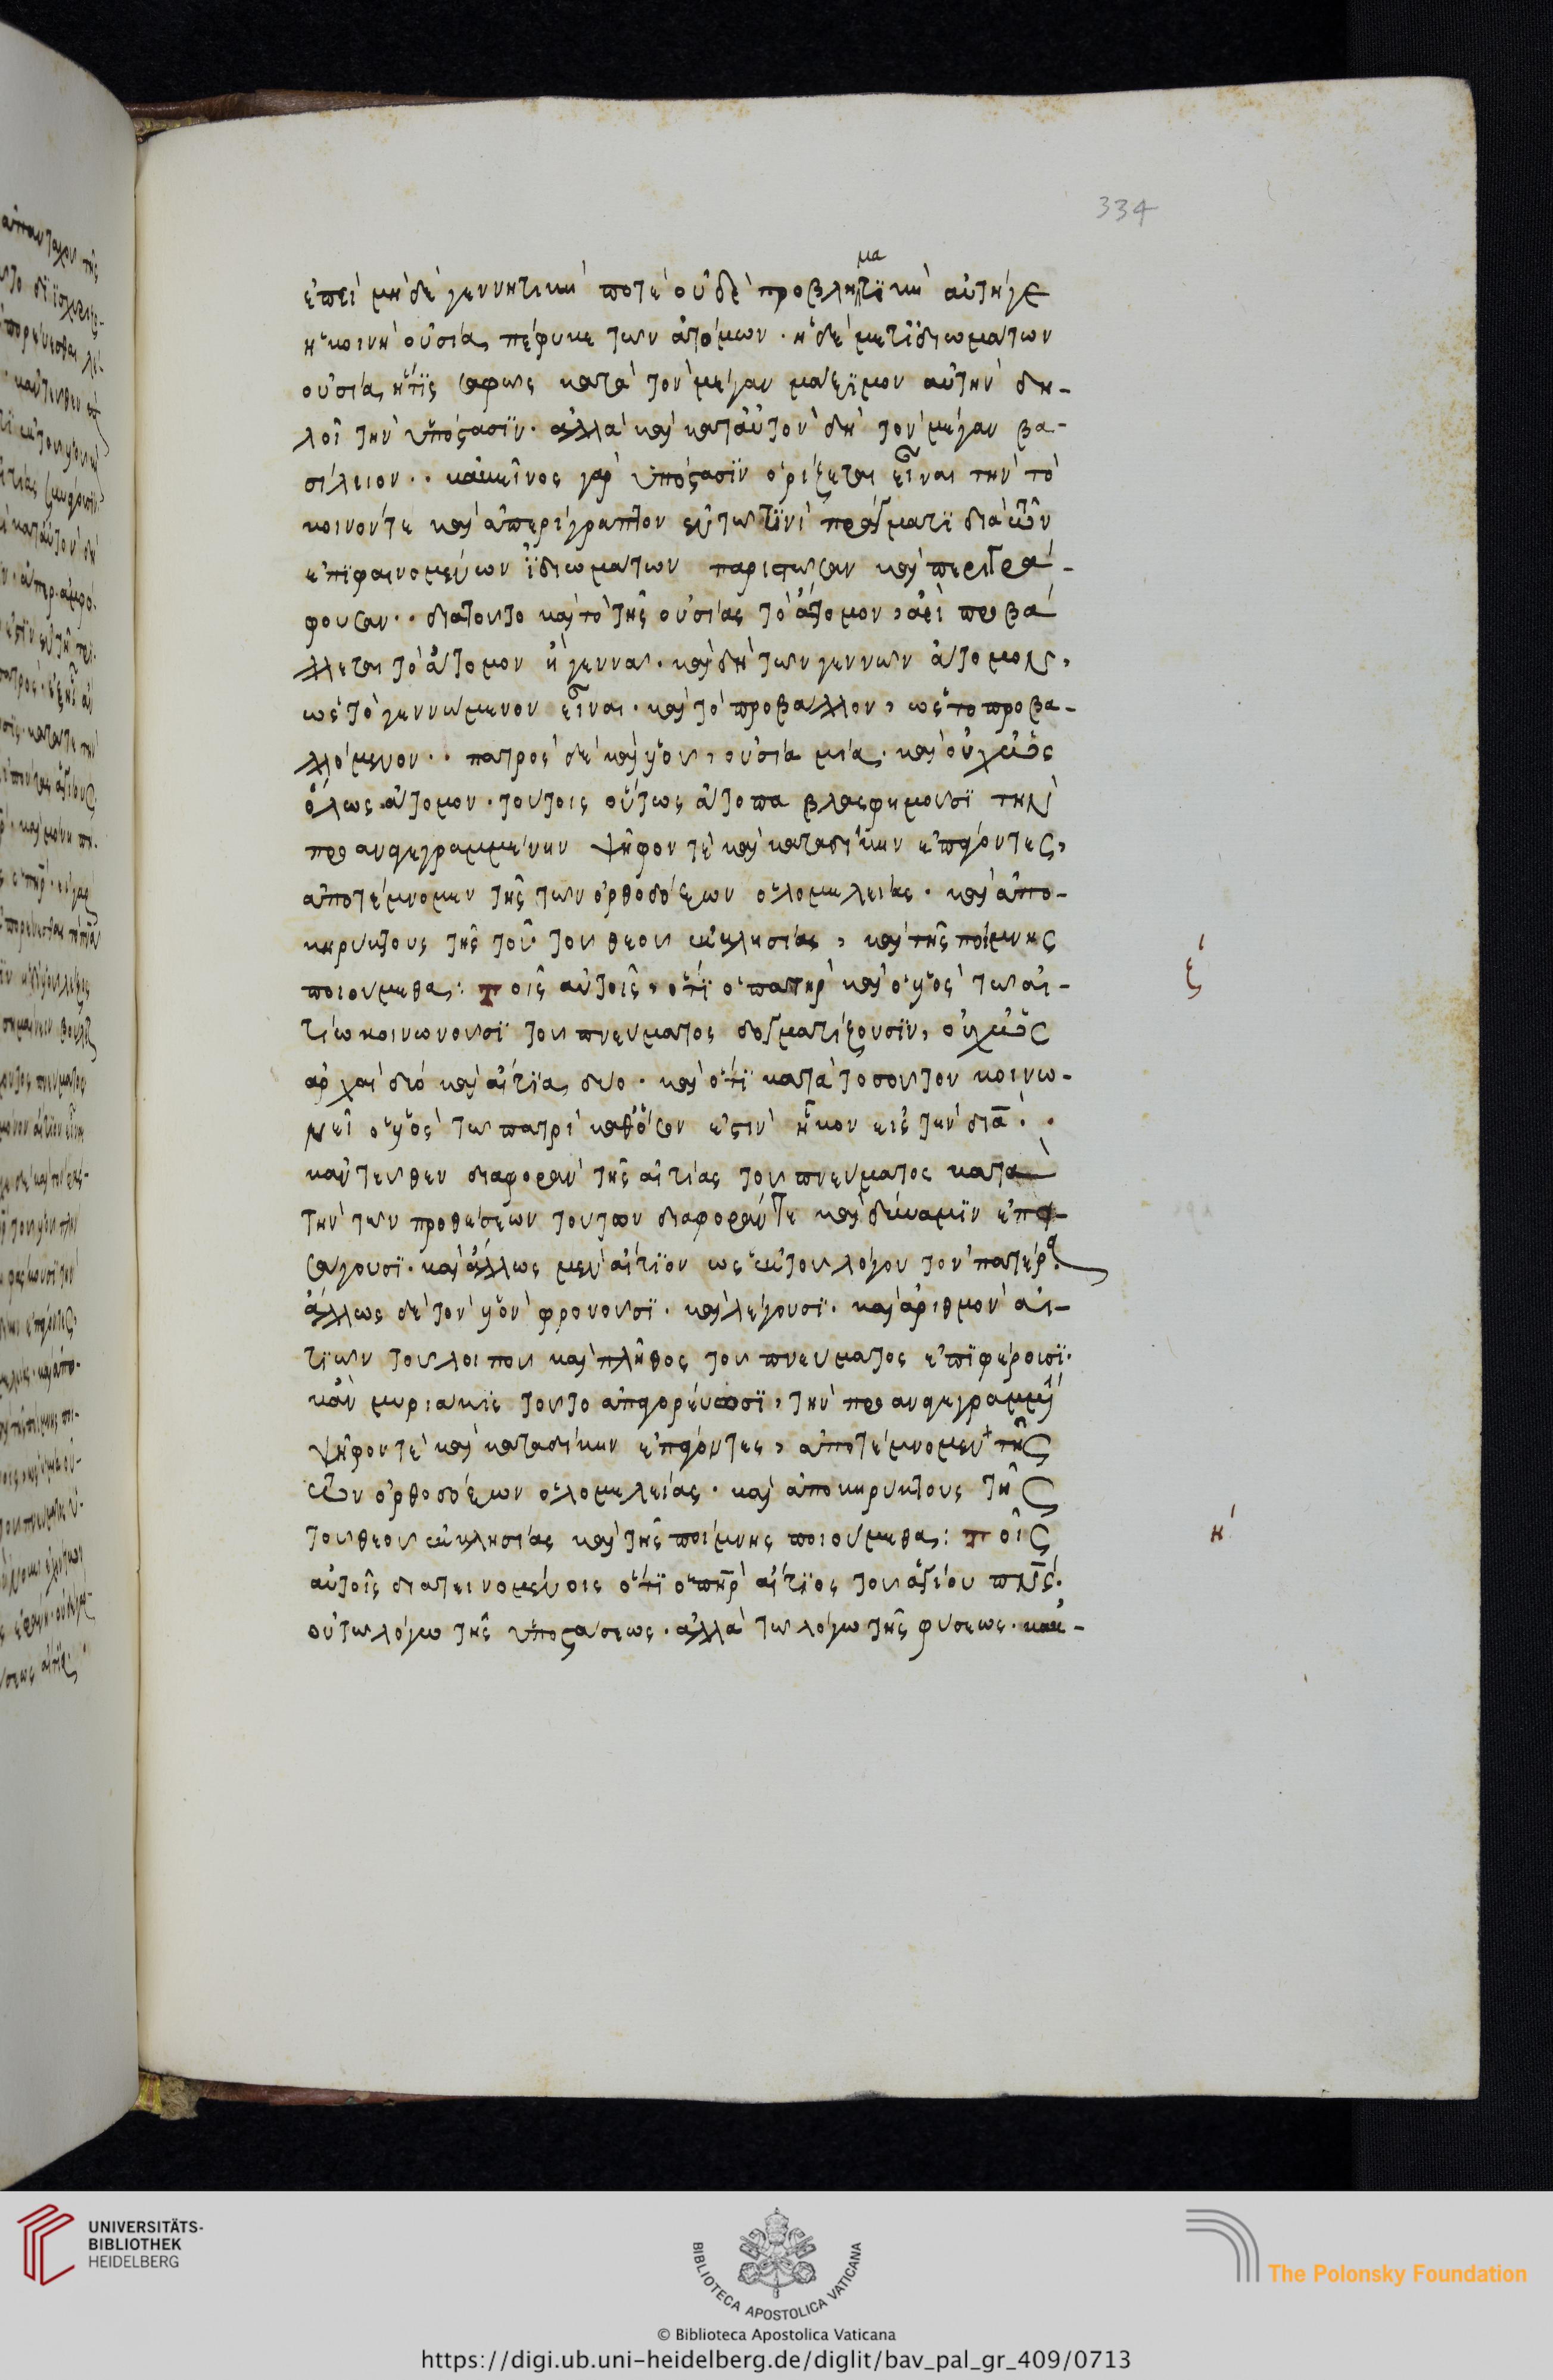 334
μα
ἐπεὶ μὴ δὲ γεννητικὴ ποτὲ οὐδὲ προβλητϊκὴ αὐτὴ γε
ἡ κοινὴ οὐσία, πέφυκε των ἀτόμων · ἡ δὲ μετϊδιωμάτων
οὐσία, ἥτϊς σαφως κατὰ τὸν μέγαν μάξϊμον αὐτὴν δη-
λοῖ τὴν ὑπόστασϊν · ἀλλὰ καὶ κατἀυτὸν δὴ τὸν μέγαν βα-
σίλειον · · κἀκεῖνος γὰρ ὑπόστασϊν ὁρίζεται εἶναι τὴν τὸ
κοινόν τε καὶ ἀπερίγραπτον ἐν τω τϊνὶ πράγματϊ διὰ τῶν
ἐπϊφαινομένων ἰδιωμάτων παριστωσαν καὶ περιγρά-
φουσαν · · διατουτο καὶ τὸ τῆς οὐσίας τὸ ἄτομον, ἀεὶ προβά
λλεται τὸ ἄτομον ἢ γεννα · καὶ δὴ των γεννων ἄτομον,
ὡς τὸ γεννώμενον εἶναι · καὶ τὸ προβάλλον, ὡς το προβα-
λλόμενον · · πατρὸς δὲ καὶ υἱου, οὐσία μία · καὶ οὐχ ὡς
ὅλως ἄτομον · τούτοις οὕτως ἄτοπα βλασφημουσϊ τὴν
προαναγεγραμμένην ψῆφον τὲ καὶ καταδίκην ἐπάγοντες,
ἀποτέμνομεν τῆς των ὀρθοδόξων ὁλομελείας · καὶ ἀπο-
κηρύκτους τῆς τοῦ του θεου ἐκκλησίας, καὶ τῆς ποίμνης
ποιούμεθα: Τοῖς αὐτοῖς, ὅτϊ ὁ πατὴρ καὶ ὁ υἱὸς τω αἰ-
ζ΄
τίω κοινωνουσϊ του πνεύματος δογματίζουσϊν, οὐχ ὡς
ἀρχαὶ δύο καὶ αἴτϊα, δυο · καὶ ὅτϊ κατὰ τοσουτον κοινω-
νεῖ ὁ υἱὸς τω πατρὶ καθόσον ἐστὶν ἧκον εἰς τὴν διὰ · ·
κἀντευθεν διαφορὰν τῆς αἰτίας του πνεύματος κατὰ
τὴν των προθέσεων τούτων διαφοράν τε καὶ δύναμϊν ἐπα-
σάγουσϊ · καὶ ἄλλως μὲν αἴτϊον ὡς ἐκ του λόγου τὸν πατέρα
ἄλλως δὲ τὸν υἱὸν φρονουσϊ · καὶ λέγουσϊ · καὶ ἀριθμὸν αἰ-
τϊων του λοιπου καὶ πλῆθος του πνεύματος ἐπϊφέρουσϊ ·
κἂν μυριάκις τουτο ἀπαγορεύωσϊ, τὴν προαναγεγραμμέν
ψῆφον τὲ καὶ καταδίκην ἐπάγοντες, ἀποτέμνομεν τῆς
τῶν ὀρθοδόξων ὁλομελείας · καὶ ἀποκηρύκτους τῆς
του θεου ἐκκλησίας καὶ τῆς ποίμνης ποιούμεθα: Τοῖς
η΄
αὐτοῖς διατεινομένοις ὅτϊ ὁ πηρ αἴτϊος του ἁγίου πνς ·
οὐ τω λόγω τῆς ὑποστάσεως · ἀλλὰ τω λόγω τῆς φύσεως · κἀκ-
UNIVERSITÄTS-
BIBLIOTHEK
HEIDELBERG
BIBLIOTECA APOSTOLICA VATICANA
The Polonsky Foundation
© Biblioteca Apostolica Vaticana
https://digi.ub.uni-heidelberg.de/diglit/bav_pal_gr_409/0713